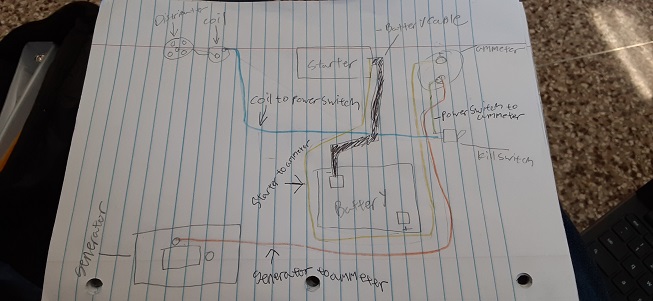 Distributor
coil
Battery cable
ammeter
Starter
coil to power switch
power switch to
ammeter
kill switch
Starter to ammeter
Battery
generator
generator to ammeter